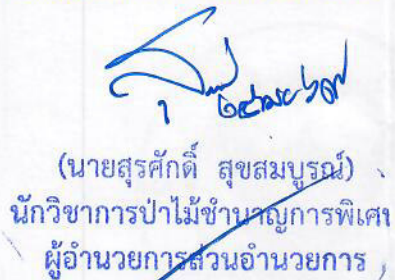 (นายสุรศักดิ์ สุขสมบูรณ์)
นักวิชาการป่าไม้ชำนาญการพิเศษ
ผู้อำนวยการส่วนอำนวยการ